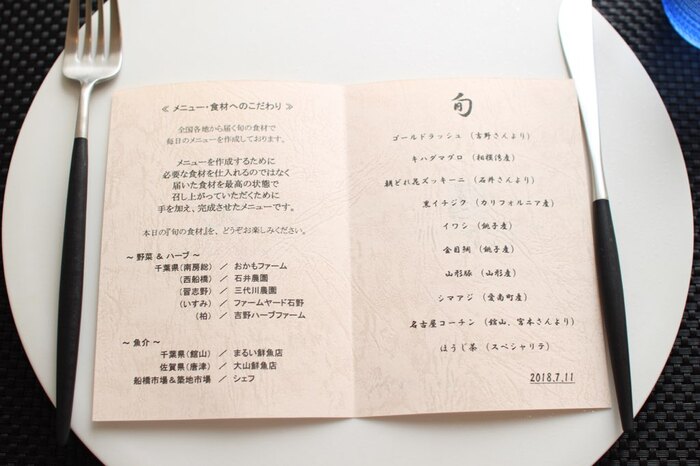 ≪ メニュー・食材へのこだわり ≫
全国各地から届く旬の食材で
毎日のメニューを作成しております。
メニューを作成するために
必要な食材を仕入れるのではなく
届いた食材を最高の状態で
召し上がっていただくために
手を加え、完成させたメニューです。
本日の『旬の食材』を、どうぞお楽しみください。
～ 野菜 & ハーブ ～
千葉県(南房総) ／ おかもファーム
(西船橋) ／ 石井農園
(習志野) ／ 三代川農園
(いすみ) ／ ファームヤード石野
(柏) ／ 吉野ハーブファーム
～ 魚介 ～
千葉県(館山) ／ まるい鮮魚店
佐賀県(唐津) ／ 大山鮮魚店
船橋市場&築地市場 ／ シェフ
旬
ゴールドラッシュ (吉野さんより)
キハダマグロ (相模湾産)
朝どれ花ズッキーニ (石井さんより)
黒イチジク (カリフォルニア産)
イワシ (銚子産)
金目鯛 (銚子産)
山形豚 (山形産)
シマアジ (愛南町産)
名古屋コーチン (館山、宮本さんより)
ほうじ茶 (スペシャリテ)
2018.7.11